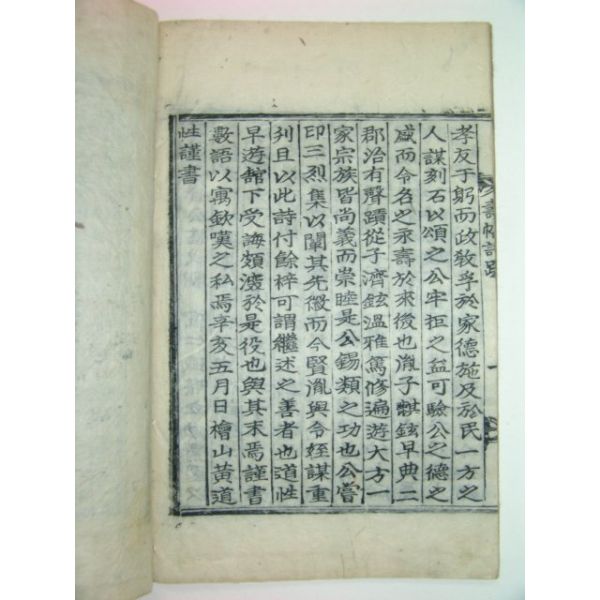 孝友于躬而政敎孚於家德施及於民一方之
人謀刻石以頌之公牢拒之益可驗公之德之
盛而令名之永壽於來後也胤子麒鉉早典二
郡治有聲蹟從子濟鉉溫雅篤修遍遊大方一
家宗族皆尚義而崇睦是公錫類之功也公嘗
印三烈集以闡其先徽而今賢胤與令姪謀重
刋且以此詩付餘梓可謂繼述之善者也道性
早遊舘下受誨頗深於是役也與其末焉謹書
數語以寓欽嘆之私焉辛亥五月日檜山黃道
性謹書